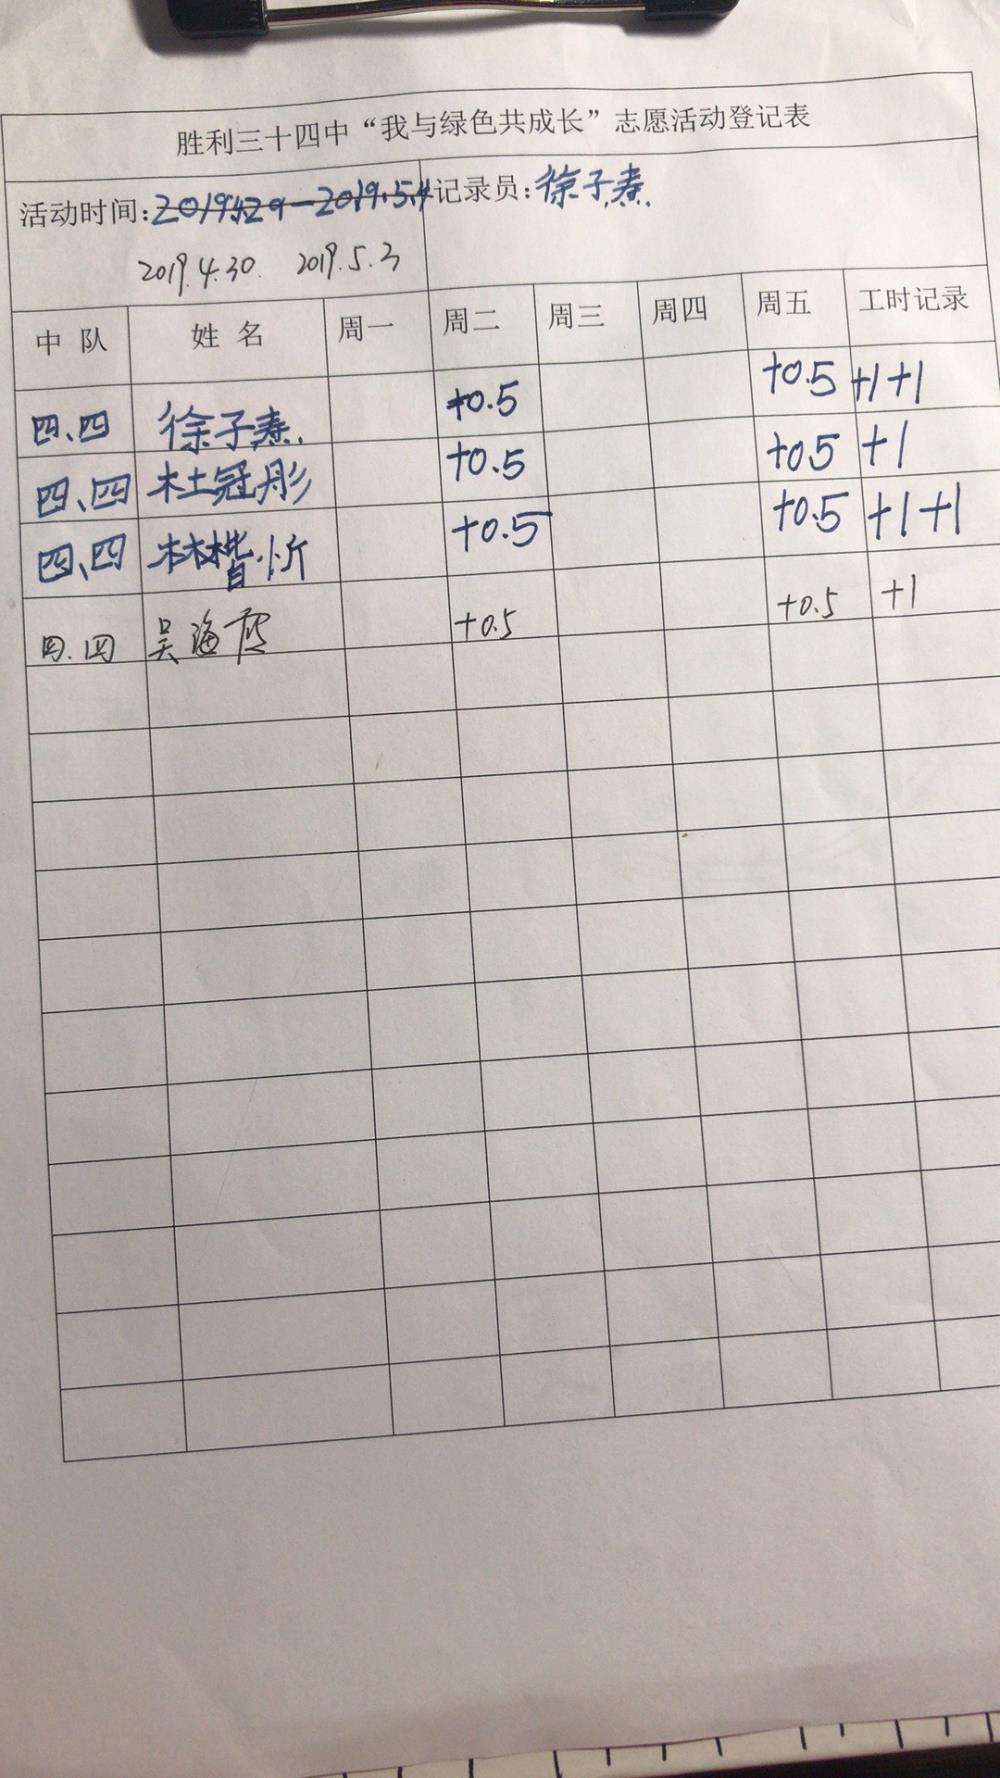 胜利三十四中“我与绿色共成长”志愿活动登记表
活动时间:2019.4.29—2019.5.4 记录员:徐子焘.
2019.4.30. 2019.5.3
中 队 姓 名 周一 周二 周三 周四 周五 工时记录
四、四 徐子焘. +0.5 +0.5 +1+1
四、四 杜冠彤 +0.5 +0.5 +1
四、四 林楷忻 +0.5 +0.5 +1+1
四.四 吴海 +0.5 +0.5 +1